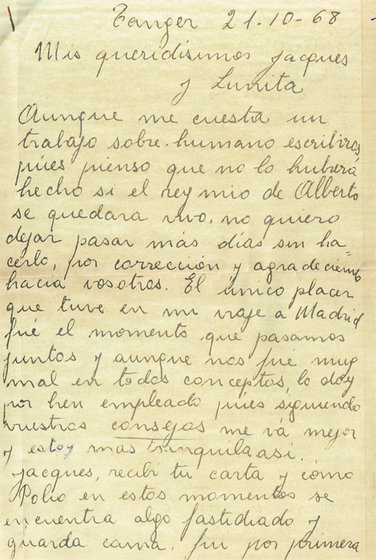 Tanger 21-10-68
Mis queridisimos Jacques
y Lunita
Aunque me cuesta un
trabajo sobre-humano escribiros
pues pienso que no lo hubiera
hecho si el rey mio de Alberto
se quedara vivo, no quiero
dejar pasar más días sin ha
cerlo, por corrección y agradecimto
hacia vosotros. El único placer
que tuve en mi viaje a Madrid
fué el momento que pasamos
juntos y aunque nos fue muy
mal en todos conceptos, lo doy
por bien empleado pués siguiendo
vuestros consejos me vá mejor
y estoy mas trinquila así.
Jacques, recibí tu carta y como
Polio en estos momentos se
encuentra algo fastidiado y
guarda cama, fui por primera